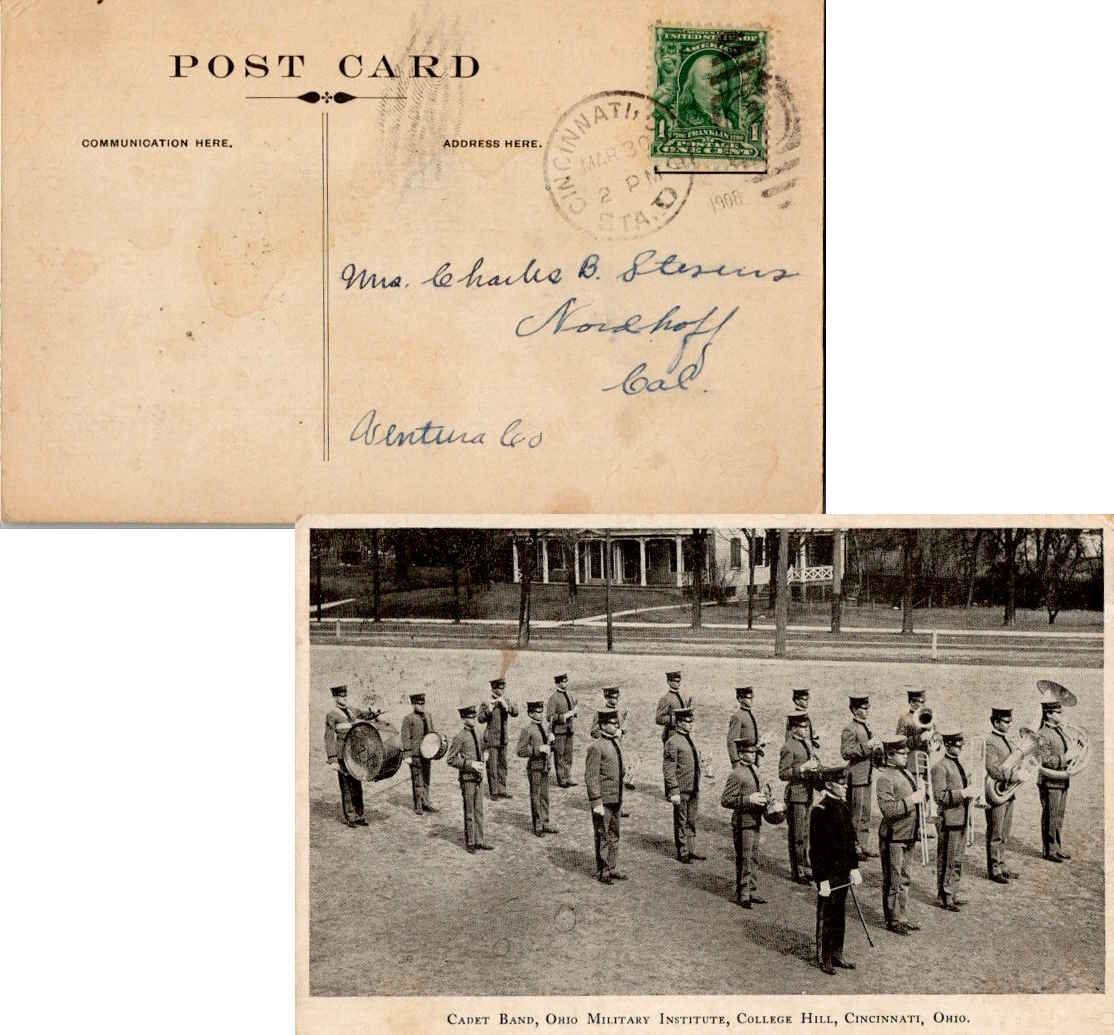 POST CARD
COMMUNICATION HERE.
ADDRESS HERE.
UNITED STATES OF
AMERICA
1 FRANKLIN 1
POSTAGE
ONE CENT
CINCINNATI,
MAR 30
2 PM
STA. D
1908
Mrs. Charles B. Stevens
Nordhoff
Cal.
Ventura Co
CADET BAND, OHIO MILITARY INSTITUTE, COLLEGE HILL, CINCINNATI, OHIO.